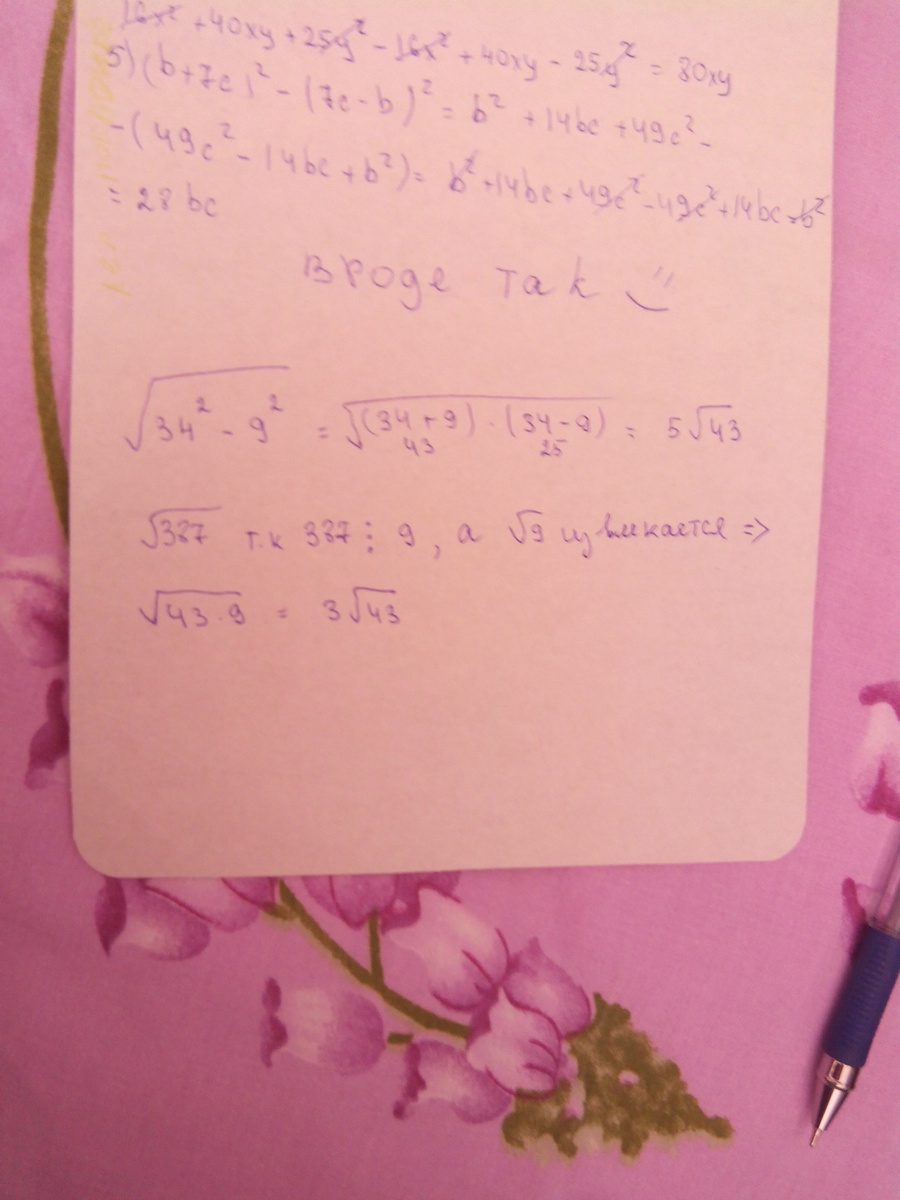 16x² + 40xy + 25y² - 16x² + 40xy - 25y² = 80xy
5) (b+7c)² - (7c-b)² = b² + 14bc + 49c² -
-(49c² - 14bc + b²) = b² + 14bc + 49c² - 49c² + 14bc - b²
= 28bc
вроде так
√34² - 9² = √(34+9)·(34-9) = 5√43
43 25
√387 т.к 387 ⋮ 9, а √9 извлекается =>
√43·9 = 3√43